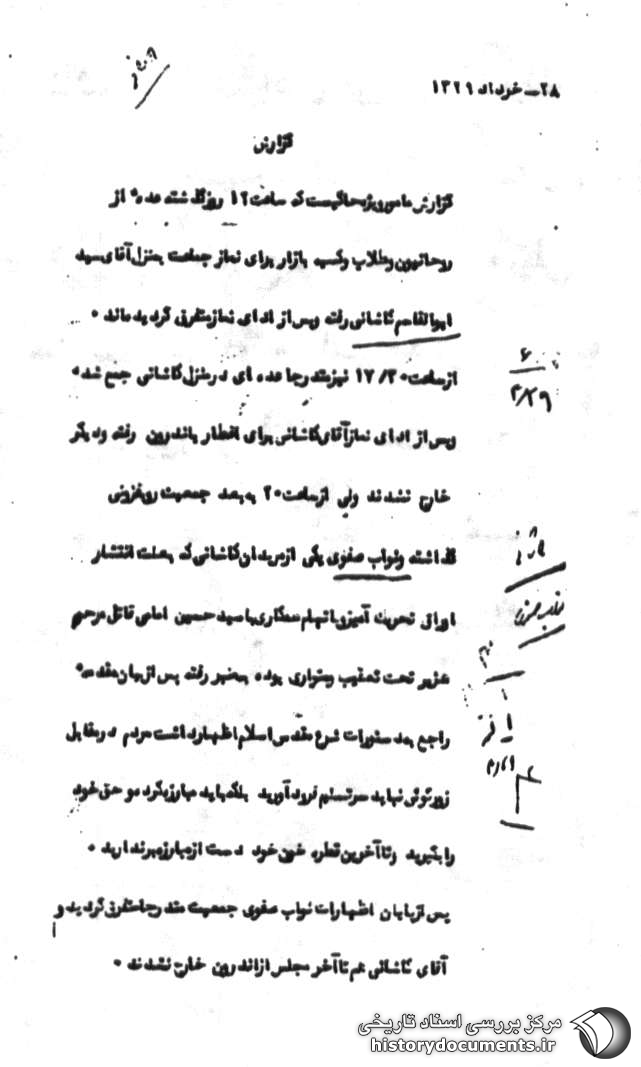 ۲۸ـ خرداد ۱۳۲۹
گزارش
گزارش مامور ویژه حاکیست که ساعت ۱۲ روز گذشته عده از
روحانیون و طلاب و کسبه بازار برای نماز جماعت بمنزل آقای سید
ابوالقاسم کاشانی رفته و پس از ادای نماز متفرق گردیده‌اند .
از ساعت ۱۷/۳۰ نیز بتدریج عده ای در منزل کاشانی جمع شده
و پس از ادای نماز آقای کاشانی برای افطار باندرون رفته و دیگر
خارج نشدند ولی از ساعت ۲۰ به بعد جمعیت روبفزونی
گذاشته و نواب صفوی یکی از مریدان کاشانی که بعلت انتشار
اوراق تحریک آمیز و باتهام همکاری با سید حسین امامی قاتل مرحوم
هژیر تحت تعقیب و متواری بوده بمنبر رفته پس از بیان مقدمه
راجع بدستورات شرع مقدس اسلام اظهار داشت مردم در مقابل
زورگوئی نباید سر تسلیم فرود آورید بلکه باید مبارزه کرده و حق خود
را بگیرید و تا آخرین قطره خون خود دست از مبارزه برندارید .
پس از پایان اظهارات نواب صفوی جمعیت متدرجا متفرق گردید و
آقای کاشانی هم تا آخر مجلس از اندرون خارج نشدند .
۶
۴/۲۹
مرکز بررسی اسناد تاریخی
historydocuments.ir